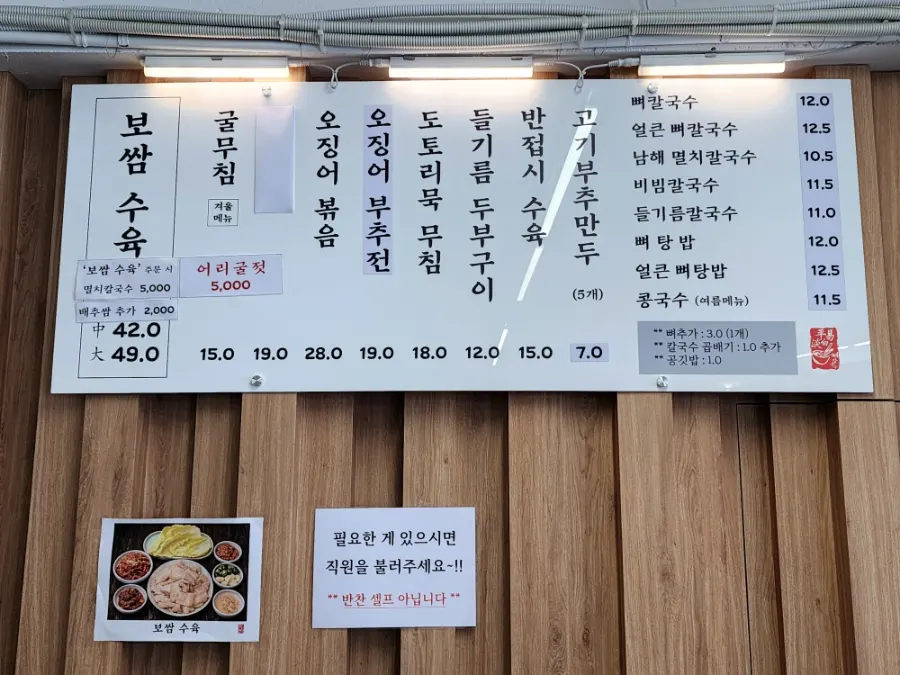 보쌈 수육
'보쌈 수육' 주문 시
멸치칼국수 5,000
배추쌈 추가 2,000
中 42.0
大 49.0
굴무침
겨울
메뉴
15.0
어리굴젓
5,000
19.0
오징어 볶음
28.0
오징어 부추전
19.0
도토리묵 무침
18.0
들기름 두부구이
12.0
반접시 수육
15.0
고기부추만두
(5개)
7.0
뼈칼국수 12.0
얼큰 뼈칼국수 12.5
남해 멸치칼국수 10.5
비빔칼국수 11.5
들기름칼국수 11.0
뼈 탕 밥 12.0
얼큰 뼈탕밥 12.5
콩국수 (여름메뉴) 11.5
** 뼈추가 : 3.0 (1개)
** 칼국수 곱배기 : 1.0 추가
** 공깃밥 : 1.0
보쌈 수육
필요한 게 있으시면
직원을 불러주세요~!!
** 반찬 셀프 아닙니다 **